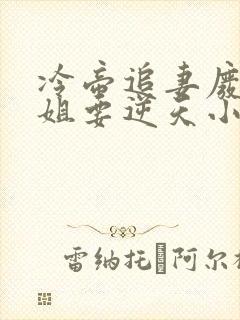 冷帝追妻废
姐要逆天小
雷纳托 阿尔